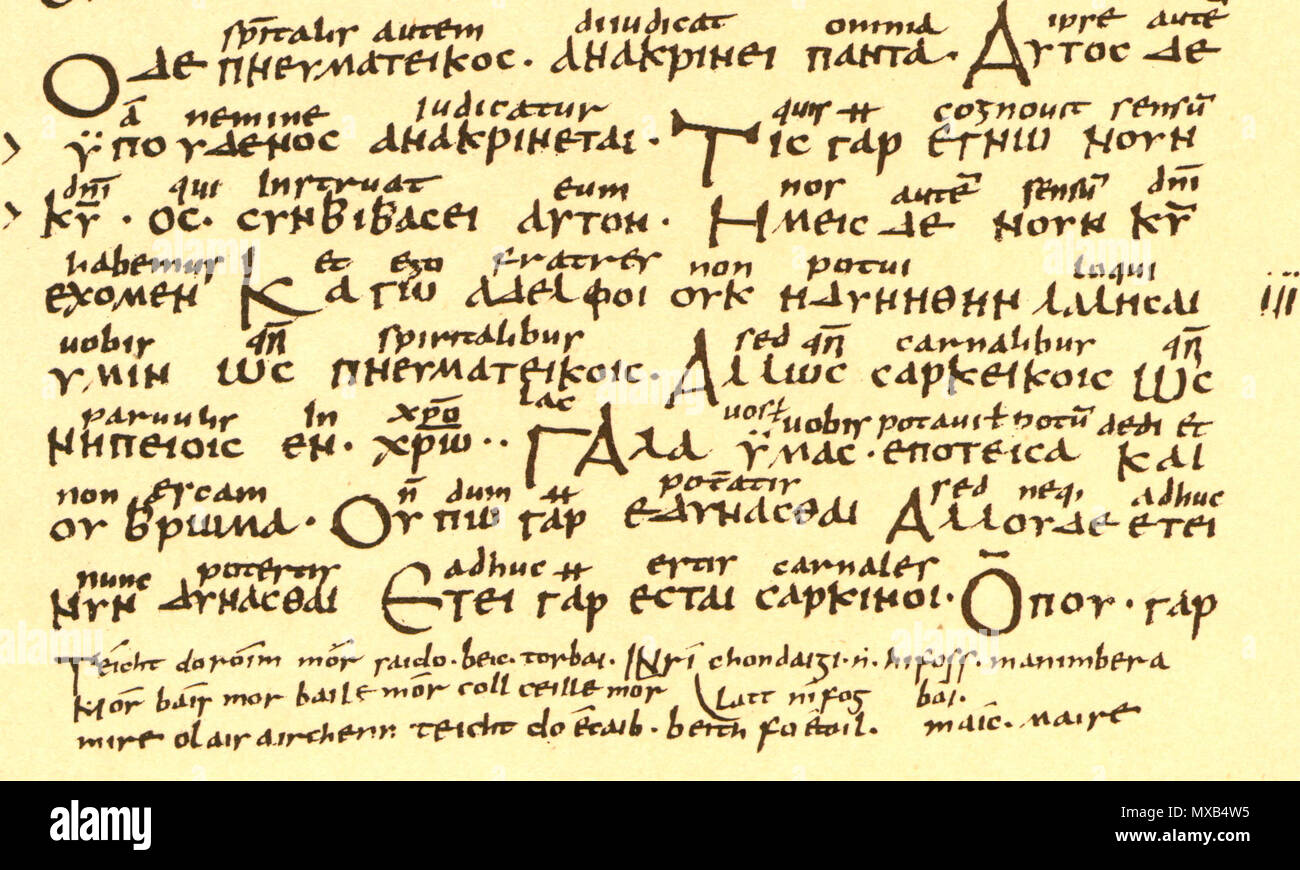 sp̄italis autem diiudicat omnia ipse autē
Ο ΔΕ ΠΝΕΥΜΑΤΕΙΚΟϹ · ΑΝΑΚΡΙΝΕΙ ΠΑΝΤΑ · ΑΥΤΟϹ ΔΕ
ā nemine iudicatur quis ⁊⁊ cognouit sensū
ΫΠΟΥΔΕΝΟϹ ΑΝΑΚΡΙΝΕΤΑΙ · ΤΙϹ ΓΑΡ ΕΓΝΩ ΝΟΥΝ
dn̄i qui instruat eum nos autē sensū dn̄i
ΚῩ · ΟϹ · ϹΥΝΒΙΒΑϹΕΙ ΑΥΤΟΝ · ΗΜΕΙϹ ΔΕ ΝΟΥΝ ΚῩ
habemus et ego fratres non potui loqui
ΕΧΟΜΕΝ ΚΑΓΩ ΑΔΕΛΦΟΙ ΟΥΚ ΗΔΥΝΗΘΗΝ ΛΑΛΗϹΑΙ iii
uobis qn̄ spiritalibus sed qn̄ carnalibus qn̄
ΥΜΙΝ ΩϹ ΠΝΕΥΜΑΤΕΙΚΟΙϹ · ΑΛΛΩϹ ϹΑΡΚΕΙΚΟΙϹ ΩϹ
paruulis in xp̄o lac uos ł uobis potaui ł potū dedi et
ΝΗΠΕΙΟΙϹ ΕΝ · ΧΡ̄Ω · · ΓΑΛΑ ΫΜΑϹ · ΕΠΟΤΕΙϹΑ ΚΑΙ
non escam n̄ dum potēatis sed neq; adhuc
ΟΥ ΒΡΩΜΑ · ΟΥΠΩ ΓΑΡ ΕΔΥΝΑϹΘΑΙ ΑΛΛΟΥΔΕ ΕΤΕΙ
nunc potestis adhuc estis carnales
ΝΥΝ ΔΥΝΑϹΘΑΙ ΕΤΕΙ ΓΑΡ ΕϹΤΑΙ ϹΑΡΚΙΝΟΙ · ΟΠΟΥ · ΓΑΡ
Téicht doróim mór saido · beic · torbai · INrí chondaigi · n̄ · hifoss · manimbera
Mór báis mor baile mór coll ceille mór latt nífog bai.
mire olais airchenn teicht doécaib · beith fo étoil · máic · Maire
alamy
Image ID: MXB4W5
www.alamy.com